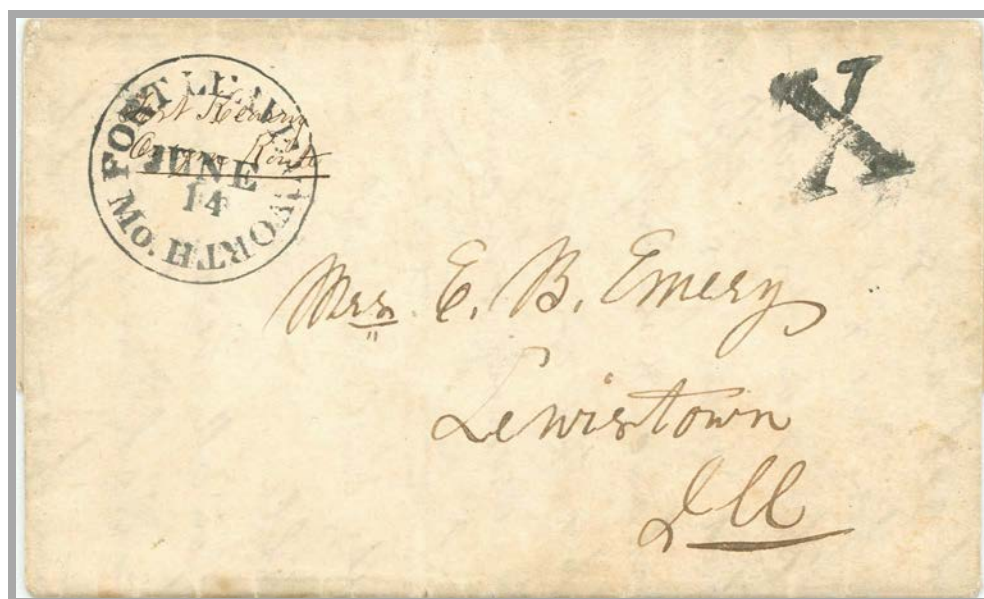 FORT LEAVENWORTH Mo.
JUNE
14
Fort Kearny
Oregon Route
X
Mrs. E. B. Emery
Lewistown
Ill